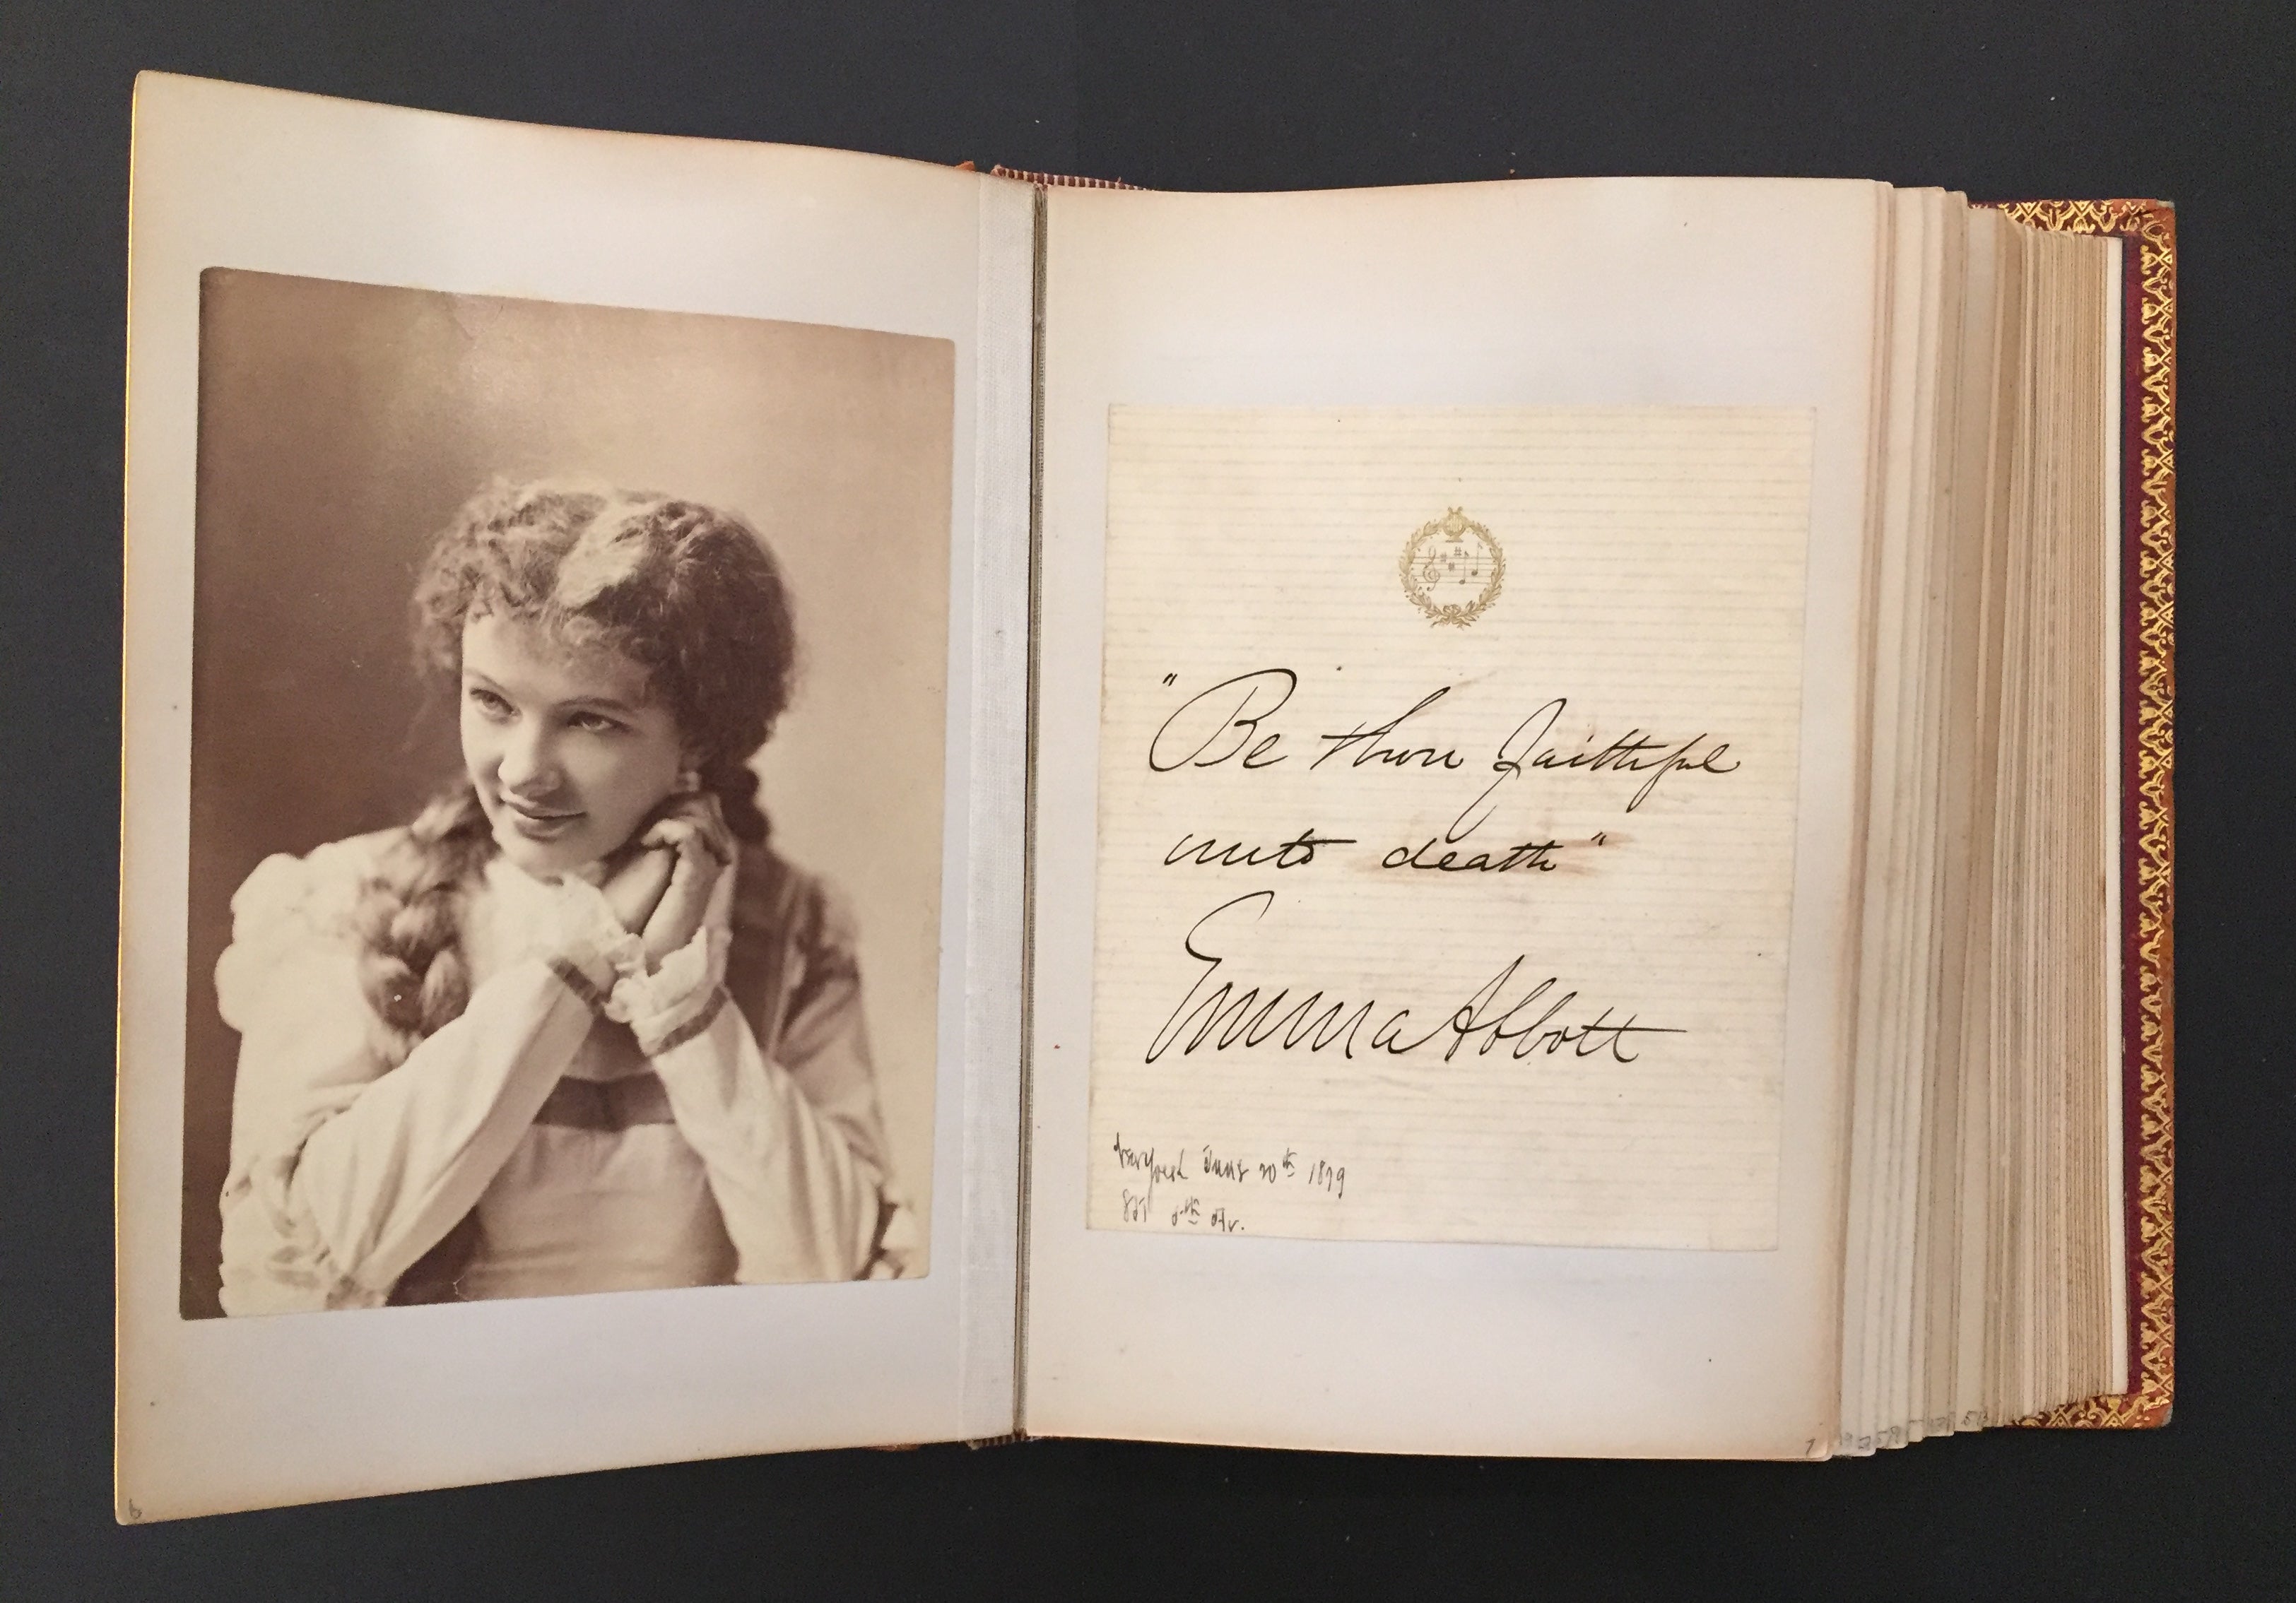 "Be thou faithful
unto death"
Emma Abbott
New York June 20th 1879
5th Av.
6
7